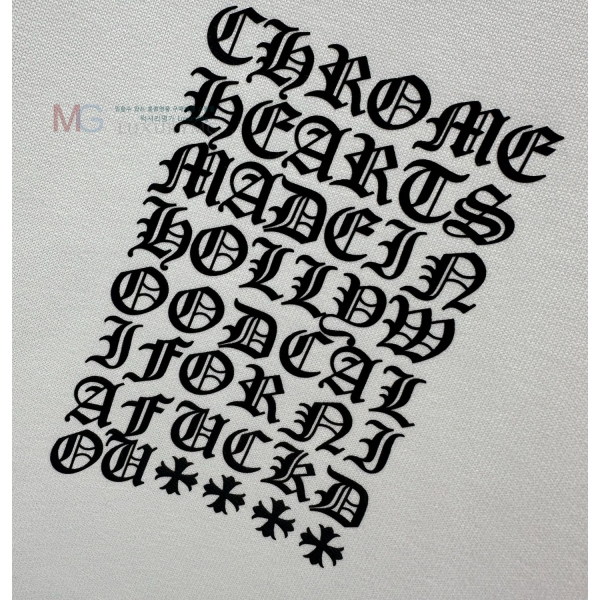 CHROME
HEARTS
MADEIN
HOLLYW
OODCAL
IFORNI
AFUCKD
OU
MG
믿을수 있는